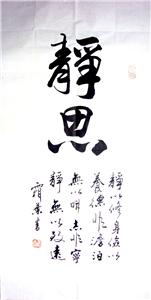 靜思
靜以修身儉以
養德非澹泊
無以明志非寧
靜無以致遠